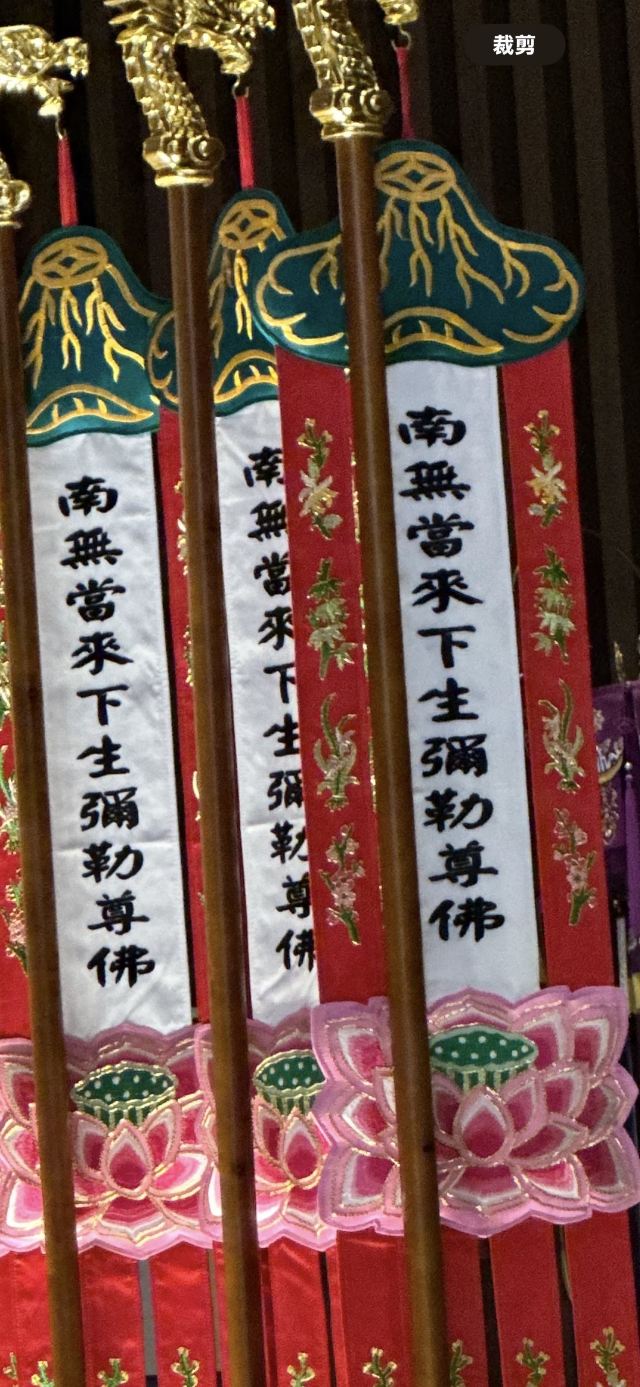 裁剪
南無當來下生彌勒尊佛
南無當來下生彌勒尊佛
南無當來下生彌勒尊佛